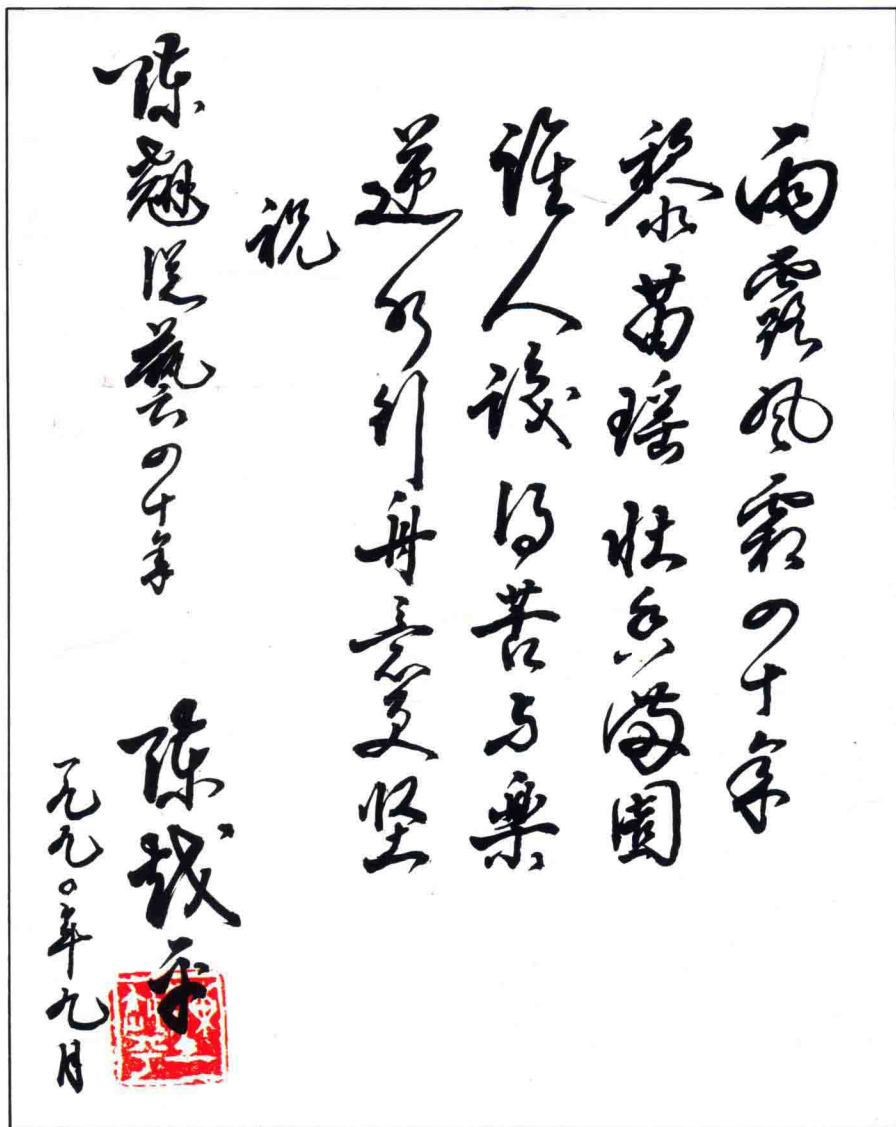 雨露风霜四十年
黎苗瑶壮香满園
谁人识得苦与樂
逆水行舟意更坚
祝
陈翘從藝四十年
陈越平
一九九〇年九月